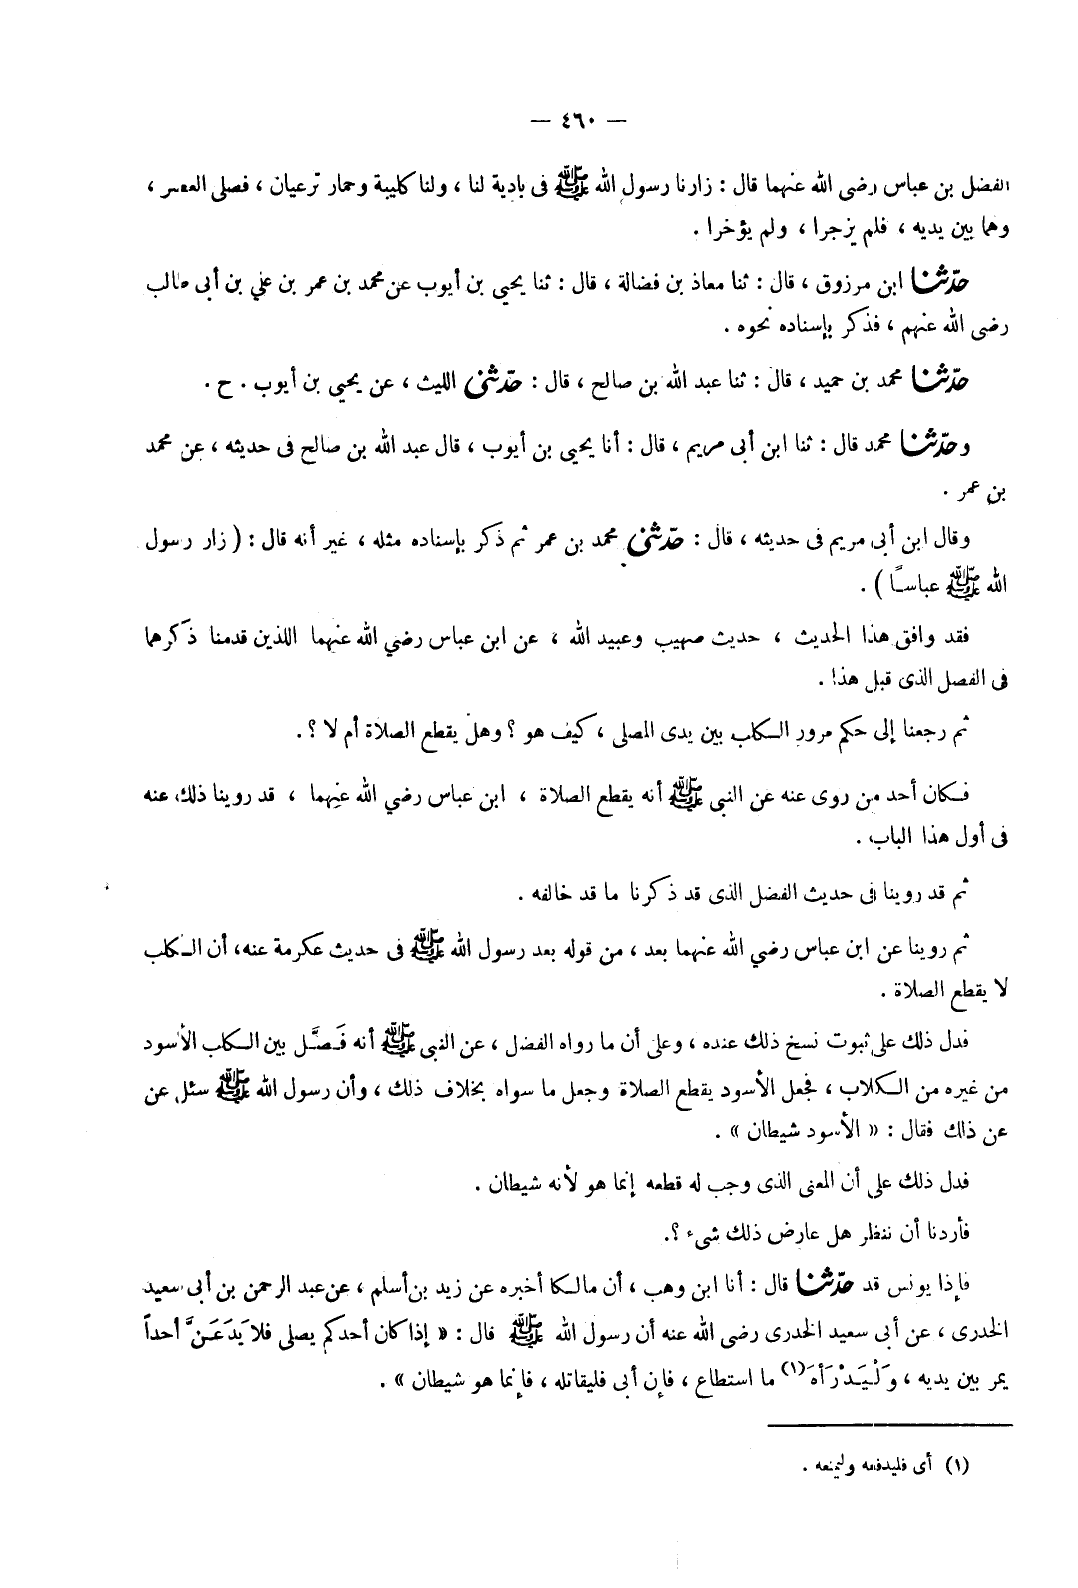 — ٤٦٠ —
الفضل بن عباس رضى الله عنهما قال : زارنا رسول الله ﷺ فى بادية لنا ، ولنا كليبة وحمار ترعيان ، فصلى العصر ،
وهما بين يديه ، فلم يزجرا ، ولم يؤخرا .
حدّثنا ابن مرزوق ، قال : ثنا معاذ بن فضالة ، قال : ثنا يحيى بن أيوب عن محمد بن عمر بن علي بن أبى طالب
رضى الله عنهم ، فذكر بإسناده نحوه .
حدّثنا محمد بن حميد ، قال : ثنا عبد الله بن صالح ، قال : حدّثنى الليث ، عن يحيى بن أيوب . ح .
وحدّثنا محمد قال : ثنا ابن أبى مريم ، قال : أنا يحيى بن أيوب ، قال عبد الله بن صالح فى حديثه ، عن محمد
بن عمر .
وقال ابن أبى مريم فى حديثه ، قال : حدّثنى محمد بن عمر ثم ذكر بإسناده مثله ، غير أنه قال : ( زار رسول
الله ﷺ عباسًا ) .
فقد وافق هذا الحديث ، حديث صهيب وعبيد الله ، عن ابن عباس رضي الله عنهما اللذين قدمنا ذكرهما
فى الفصل الذى قبل هذا .
ثم رجعنا إلى حكم مرور الكلب بين يدى المصلى ، كيف هو ؟ وهل يقطع الصلاة أم لا ؟ .
فكان أحد من روى عنه عن النبى ﷺ أنه يقطع الصلاة ، ابن عباس رضي الله عنهما ، قد روينا ذلك عنه
فى أول هذا الباب .
ثم قد روينا فى حديث الفضل الذى قد ذكرنا ما قد خالفه .
ثم روينا عن ابن عباس رضي الله عنهما بعد ، من قوله بعد رسول الله ﷺ فى حديث عكرمة عنه، أن الكلب
لا يقطع الصلاة .
فدل ذلك على ثبوت نسخ ذلك عنده ، وعلى أن ما رواه الفضل ، عن النبى ﷺ أنه فَصَّل بين الكلب الأسود
من غيره من الكلاب ، فجعل الأسود يقطع الصلاة وجعل ما سواه بخلاف ذلك ، وأن رسول الله ﷺ سئل عن
عن ذلك فقال : « الأسود شيطان » .
فدل ذلك على أن المعنى الذى وجب له قطعه إنما هو لأنه شيطان .
فأردنا أن ننظر هل عارض ذلك شىء ؟.
فإذا يونس قد حدّثنا قال : أنا ابن وهب ، أن مالكا أخبره عن زيد بن أسلم ، عن عبد الرحمن بن أبى سعيد
الخدرى ، عن أبى سعيد الخدرى رضى الله عنه أن رسول الله ﷺ قال : « إذا كان أحدكم يصلى فلا يَدَعَنَّ أحداً
يمر بين يديه ، وَلْيَدْرَأهَ(١) ما استطاع ، فإن أبى فليقاتله ، فإنما هو شيطان » .
(١) أى فليدفعه وليمنعه .